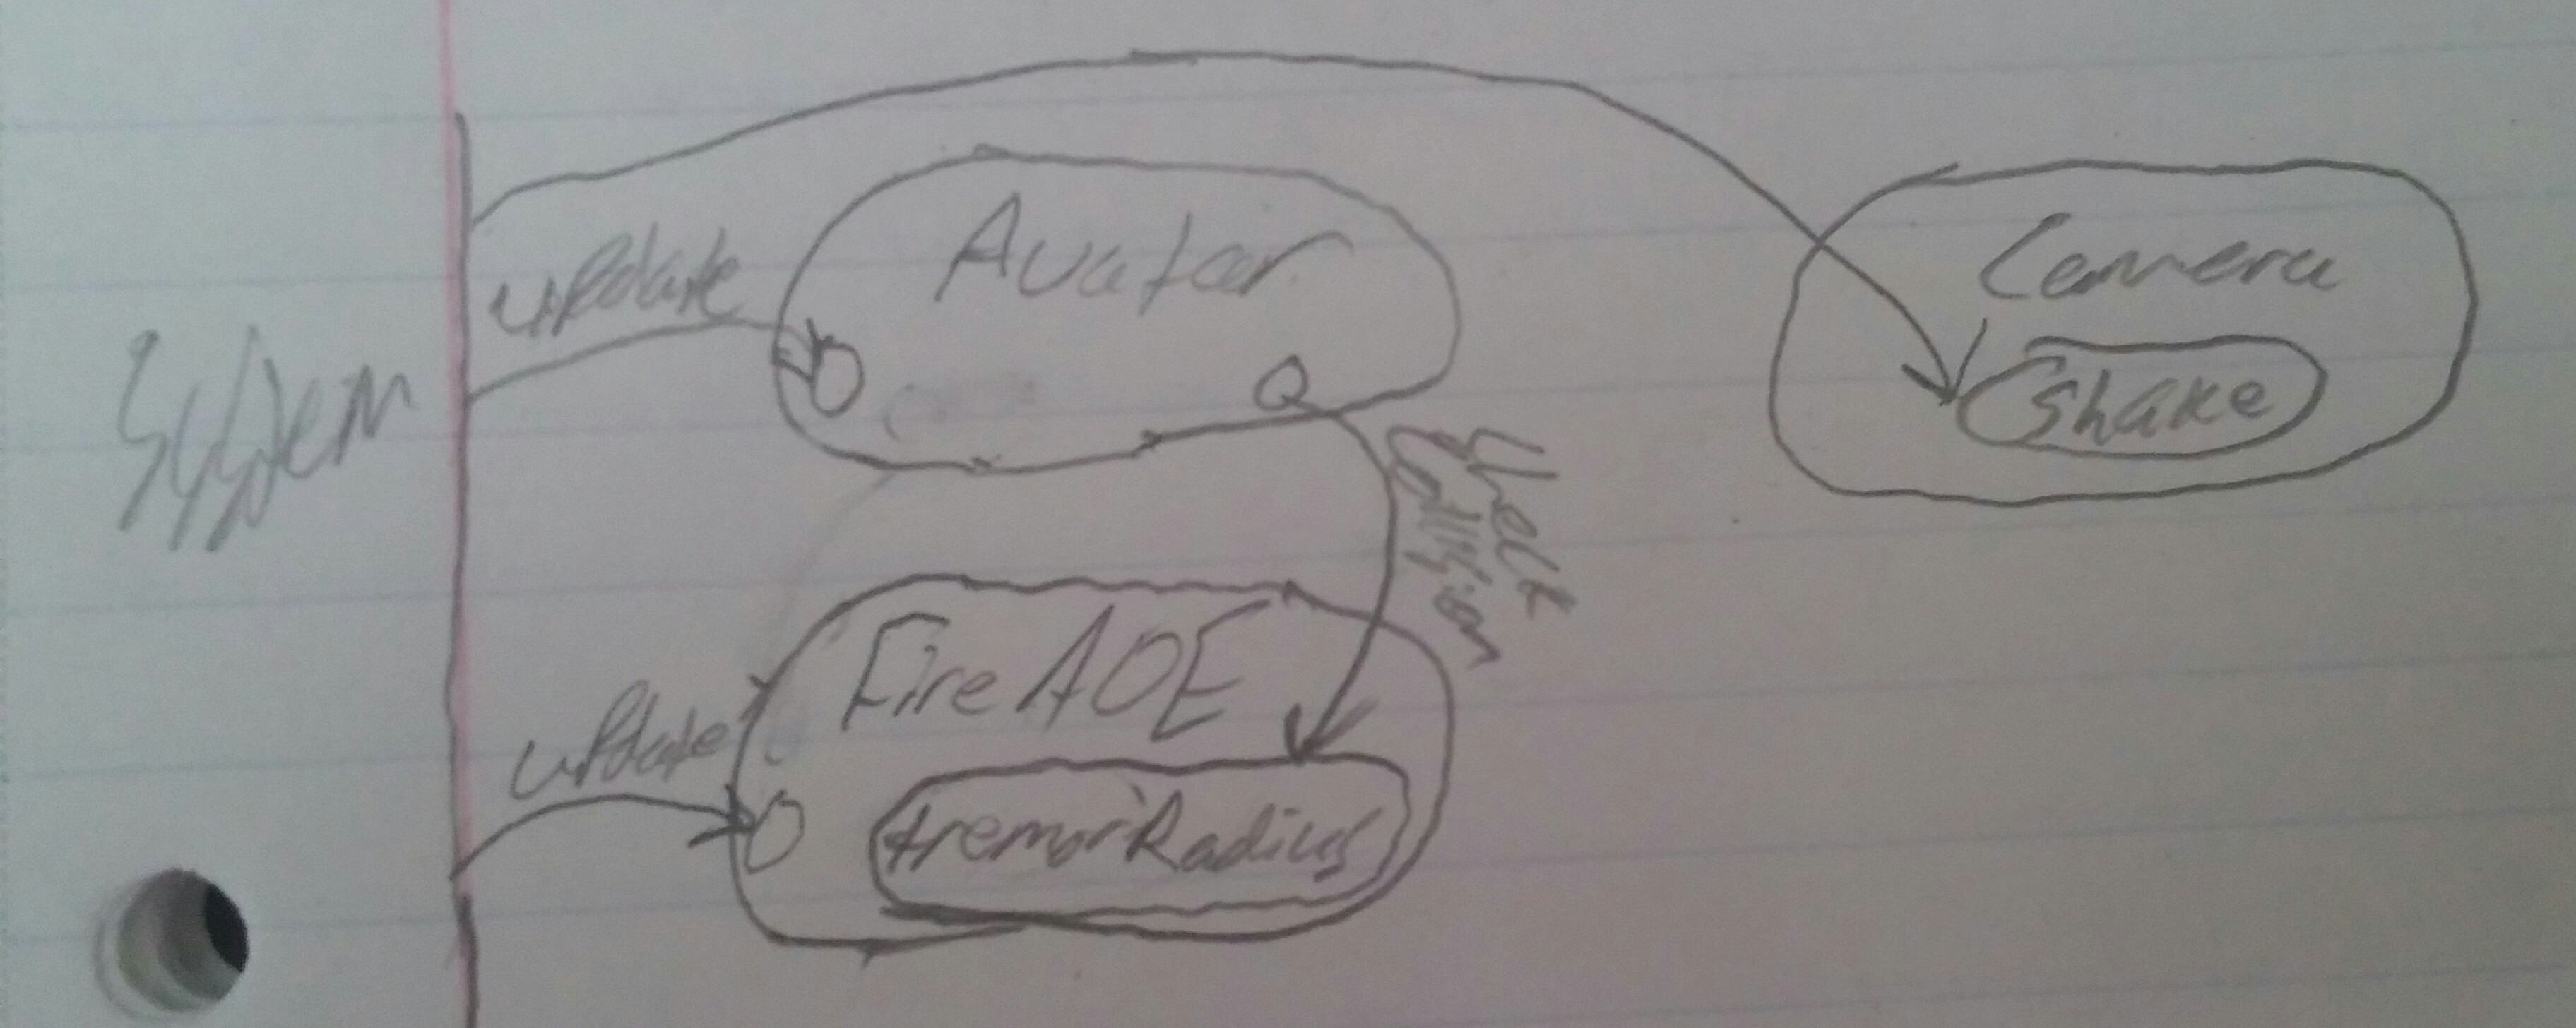 System
update
Avatar
Camera
Shake
Check
Collision
update
Fire AOE
tremorRadius